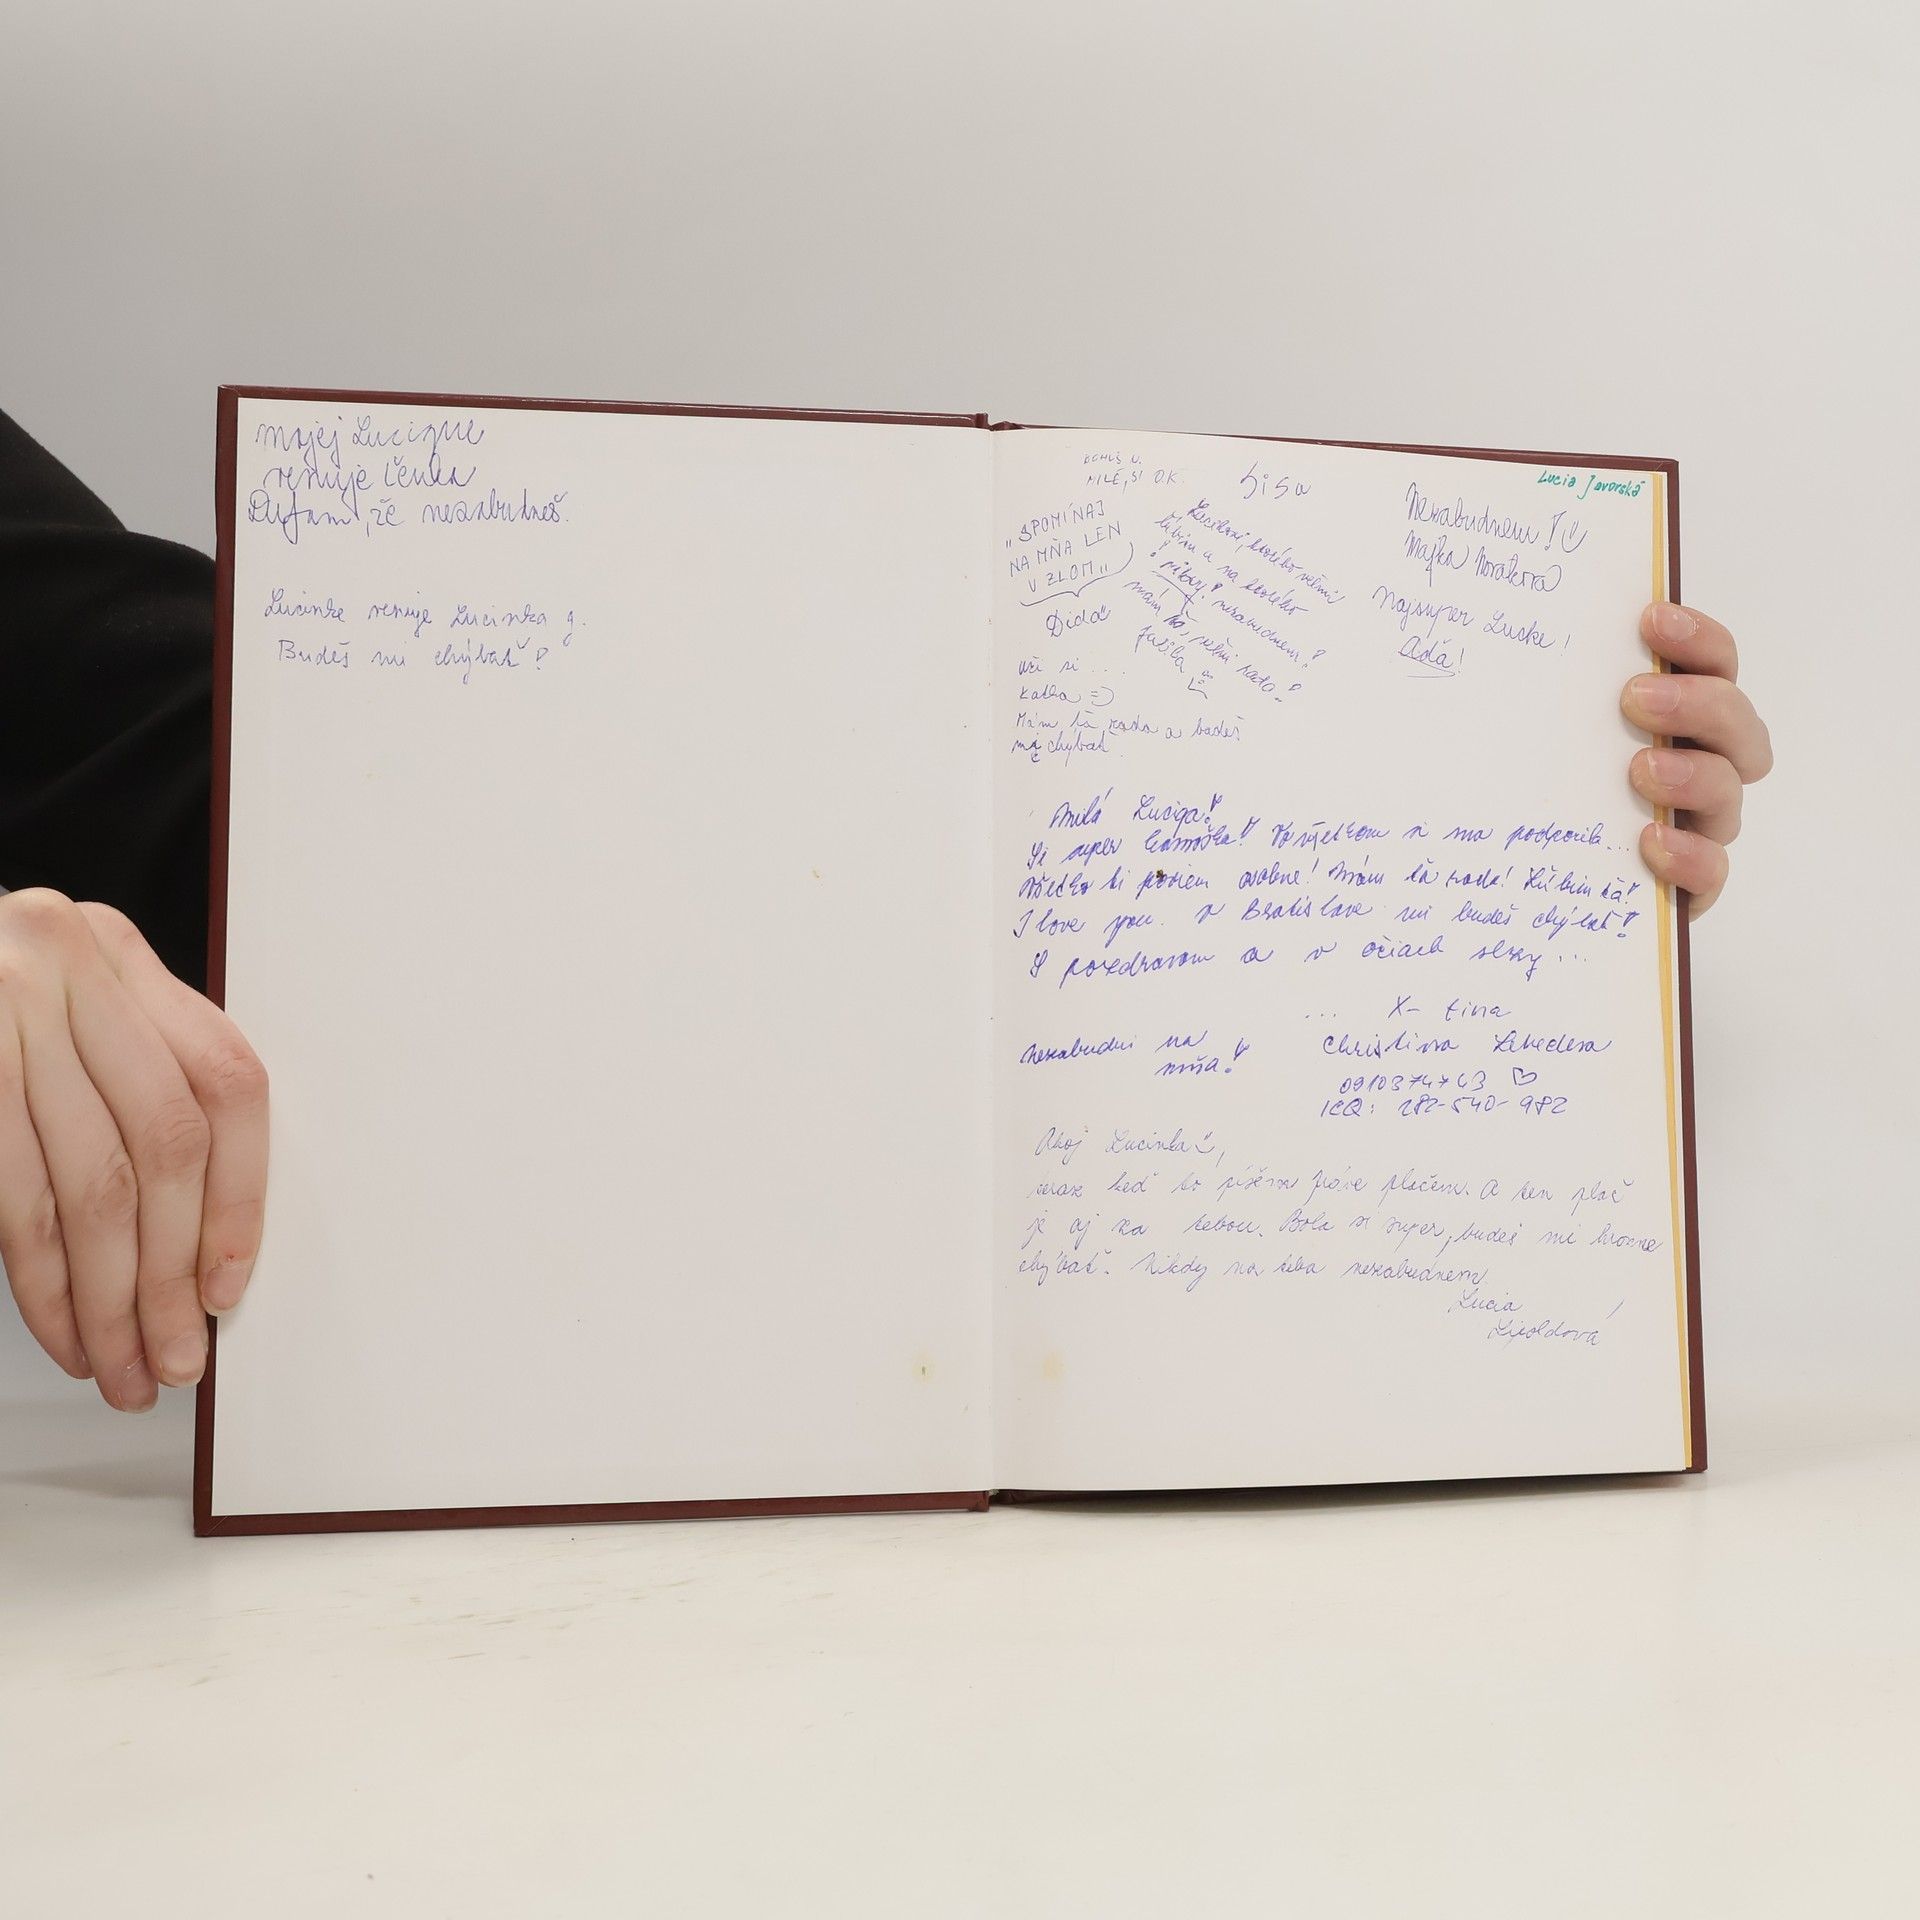 Mojej Lucigue
venuje Lenka
Dúfam, že nezabudneš.
Lucinke venuje Lucinka g.
Budeš mi chýbať!
MILÉ, SI O.K.
SiSa
Lucia Javorská
"SPOMÍNAJ
NA MŇA LEN
V ZLOM"
Dida
ktorého veľmi
ľúbim a na ktorého
nikdy! nezabudnem!
mám ťa veľmi rada!
Nezabudnem!
Majka Nováková
Najsuper Lucke!
Aďa!
si ...
Katka =)
Mám ťa rada a budeš
mi chýbať.
Milá Luciga!
Si super kamoška! Vo všetkom si ma podporila...
Všetko ti poviem osobne! Mám ťa rada! Ľúbim ťa!
I love you. V Bratislave mi budeš chýbať!
S pozdravom a v očiach slzy...
... X- tina
Nezabudni na
mňa!
Christina
0910374743
ICQ: 282-540-982
Ahoj Lucinka,
teraz keď to píšem práve plačem. A ten plač
je aj za tebou. Bola si super, budeš mi hrozne
chýbať. Nikdy na teba nezabudnem.
Lucia